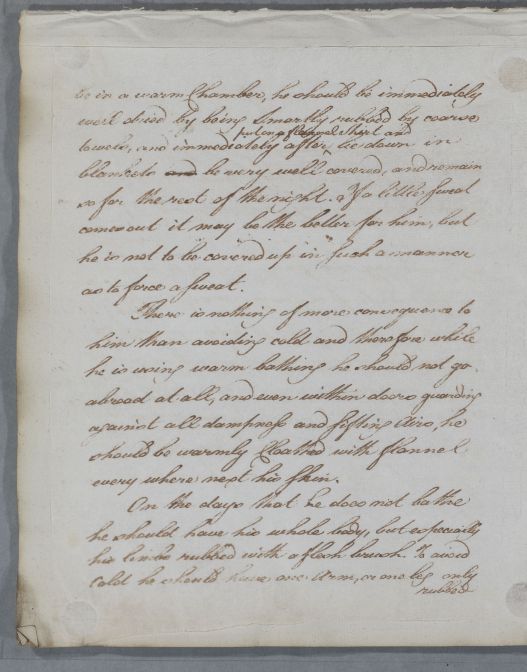 be in a warm Chamber, he should be immediately
well dried by being Smartly rubbed by coarse
put on a flannel Shirt and
towels, and immediately after lie down in
blankets and be very well covered, and remain
so for the rest of the night. If a little Sweat
comes out it may be the better for him, but
he is not to be covered up in Such a manner
as to force a Sweat.
There is nothing of more consequence to
him than avoiding cold and therefore while
he is using warm bathing he should not go
abroad at all, and even within doors guarding
against all dampness and Sifting Airs, he
should be warmly Cloathed with flannel
every where next his Skin.
On the days that he does not bathe
he should have his whole body, but especially
his limbs rubbed with a flesh brush. To avoid
Cold he should have one Arm, or one leg only
rubbed